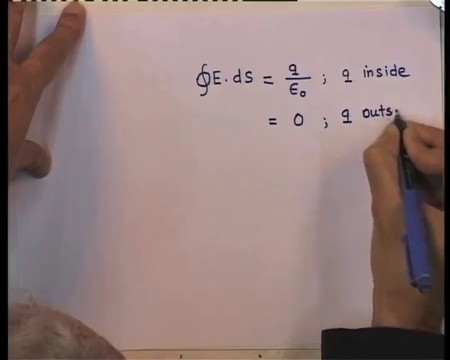 ∮E.dS = q/ε₀ ; q inside
= 0 ; q outs